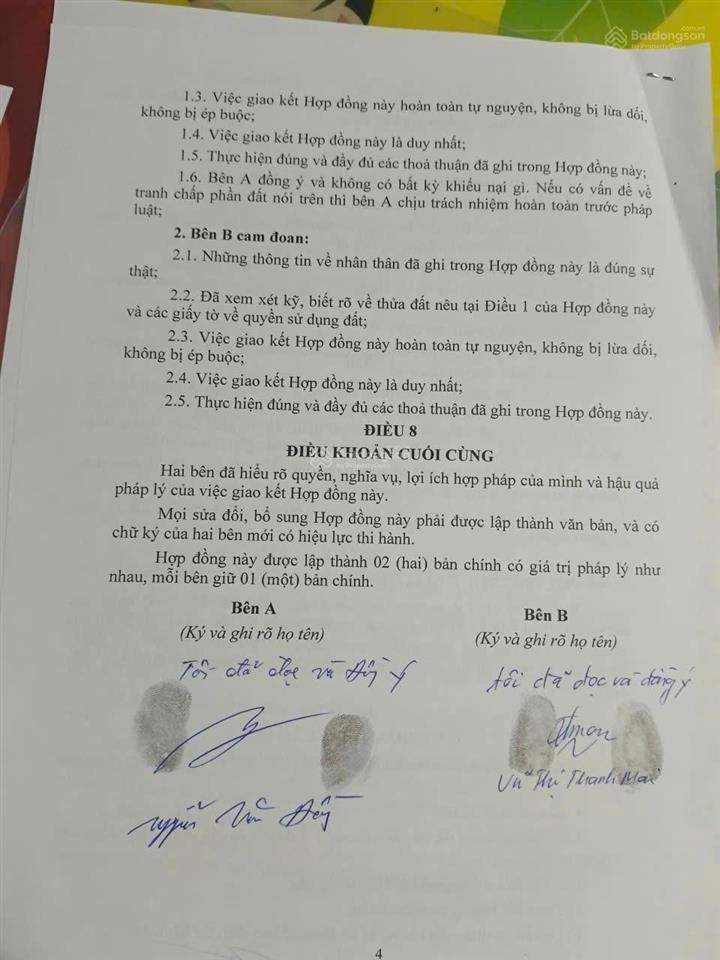 Batdongsan
by PropertyGuru
1.3. Việc giao kết Hợp đồng này hoàn toàn tự nguyện, không bị lừa dối,
không bị ép buộc;
1.4. Việc giao kết Hợp đồng này là duy nhất;
1.5. Thực hiện đúng và đầy đủ các thoả thuận đã ghi trong Hợp đồng này;
1.6. Bên A đồng ý và không có bất kỳ khiếu nại gì. Nếu có vấn đề về
tranh chấp phần đất nói trên thì bên A chịu trách nhiệm hoàn toàn trước pháp
luật;
2. Bên B cam đoan:
2.1. Những thông tin về nhân thân đã ghi trong Hợp đồng này là đúng sự
thật;
2.2. Đã xem xét kỹ, biết rõ về thửa đất nêu tại Điều 1 của Hợp đồng này
và các giấy tờ về quyền sử dụng đất;
2.3. Việc giao kết Hợp đồng này hoàn toàn tự nguyện, không bị lừa dối,
không bị ép buộc;
2.4. Việc giao kết Hợp đồng này là duy nhất;
2.5. Thực hiện đúng và đầy đủ các thoả thuận đã ghi trong Hợp đồng này.
ĐIỀU 8
ĐIỀU KHOẢN CUỐI CÙNG
Hai bên đã hiểu rõ quyền, nghĩa vụ, lợi ích hợp pháp của mình và hậu quả
pháp lý của việc giao kết Hợp đồng này.
Mọi sửa đổi, bổ sung Hợp đồng này phải được lập thành văn bản, và có
chữ ký của hai bên mới có hiệu lực thi hành.
Hợp đồng này được lập thành 02 (hai) bản chính có giá trị pháp lý như
nhau, mỗi bên giữ 01 (một) bản chính.
Bên A
(Ký và ghi rõ họ tên)
Tôi đã đọc và đồng ý
Văn
Bên B
(Ký và ghi rõ họ tên)
tôi đã đọc và đồng ý
Vũ Thị Thanh Mai
4